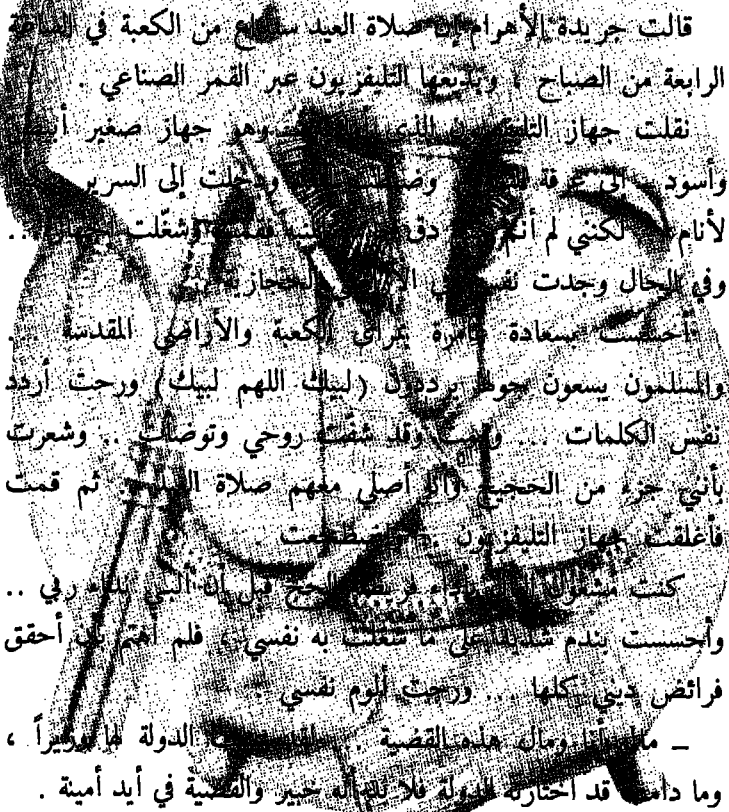 قالت جريدة الأهرام إن صلاة العيد ستذاع من الكعبة في الساعة
الرابعة من الصباح ، ويذيعها التليفزيون عبر القمر الصناعي .
نقلت جهاز التليفزيون الذي وهو جهاز صغير أبيض
وأسود إلى غرفة ودخلت إلى السرير
لأنام لكنني لم أنم دق فقمت وشغّلت الجهاز ...
وفي الحال وجدت نفسي في الأراضي الحجازية
أحسست بسعادة غامرة بمرأى الكعبة والأراضي المقدسة ..
والمسلمون يسعون حولها يرددون (لبيك اللهم لبيك) ورحت أردد
نفس الكلمات ... وقمت وقد شفّت روحي وتوضأت .. وشعرت
بأنني جزء من الحجيج وأنا أصلي معهم صلاة العيد .. ثم قمت
فأغلقت جهاز التليفزيون .. واضطجعت .
كنت مشغولا بأداء فريضة الحج قبل أن ألبي نداء ربي ..
وأحسست بندم شديد على ما شغلت به نفسي ، فلم أهتم بأن أحقق
فرائض ديني كلها ... ورحت ألوم نفسي .
– مالي أنا ومال هذه القضية .. الدولة لها وزيراً ،
وما دامت قد اختارته الدولة فلا بد أنه خبير والقضية في أيد أمينة .